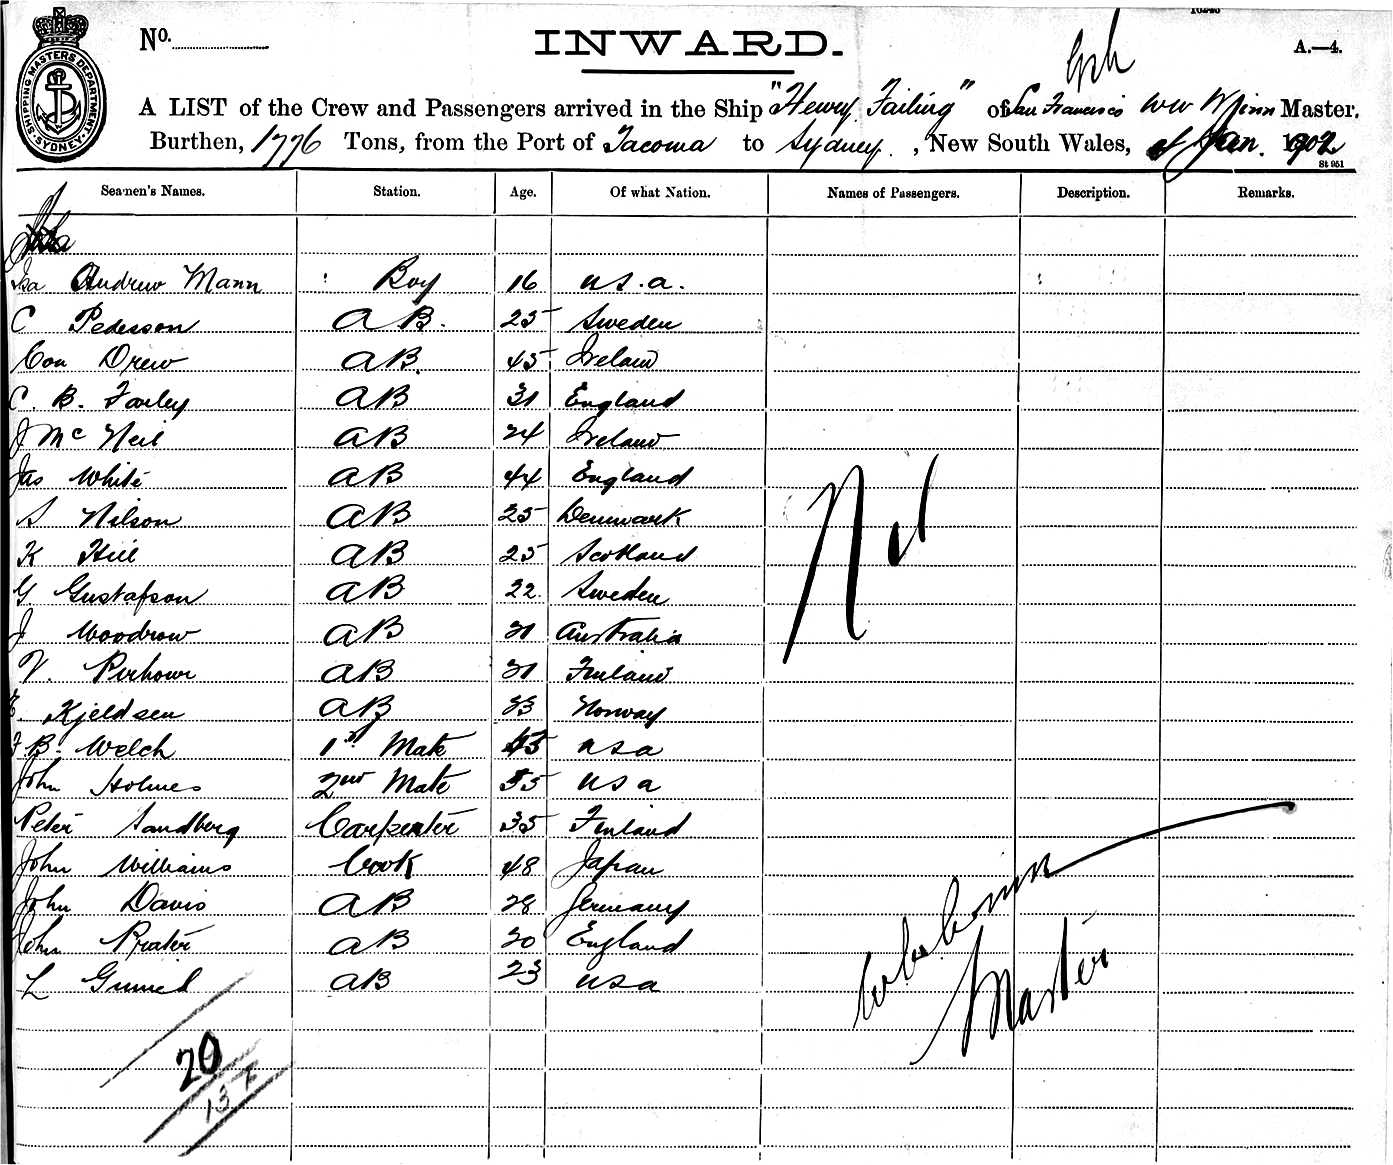 SHIPPING MASTERS DEPARTMENT SYDNEY
No.
INWARD.
A.—4.
A LIST of the Crew and Passengers arrived in the Ship "Henry Failing" of San Francisco WW Master.
Burthen, 1776 Tons, from the Port of Tacoma to Sydney, New South Wales, Jan. 1902
St 951
Seamen's Names. Station. Age. Of what Nation. Names of Passengers. Description. Remarks.
Isa Andrew Mann Boy 16 U.S.A.
C Pederson AB. 25 Sweden
Con Drew AB. 45 Ireland
C. B. Farley AB 31 England
J McNeil AB 24 Ireland
Jas White AB 44 England
S Nilson AB 25 Denmark
K Hill AB 25 Scotland
G Gustafson AB 22 Sweden
J Woodrow AB Australia
V. AB Finland
E. Kjeldsen AB 33 Norway
F.B. Welch 1st Mate USA
John Holmes 2nd Mate 55 USA
Peter Sandberg Carpenter 35 Finland
John Williams Cook 48 Japan
John Davis AB 28 Germany
John Prater AB England
L AB 23 USA
Nil
Master
20
13